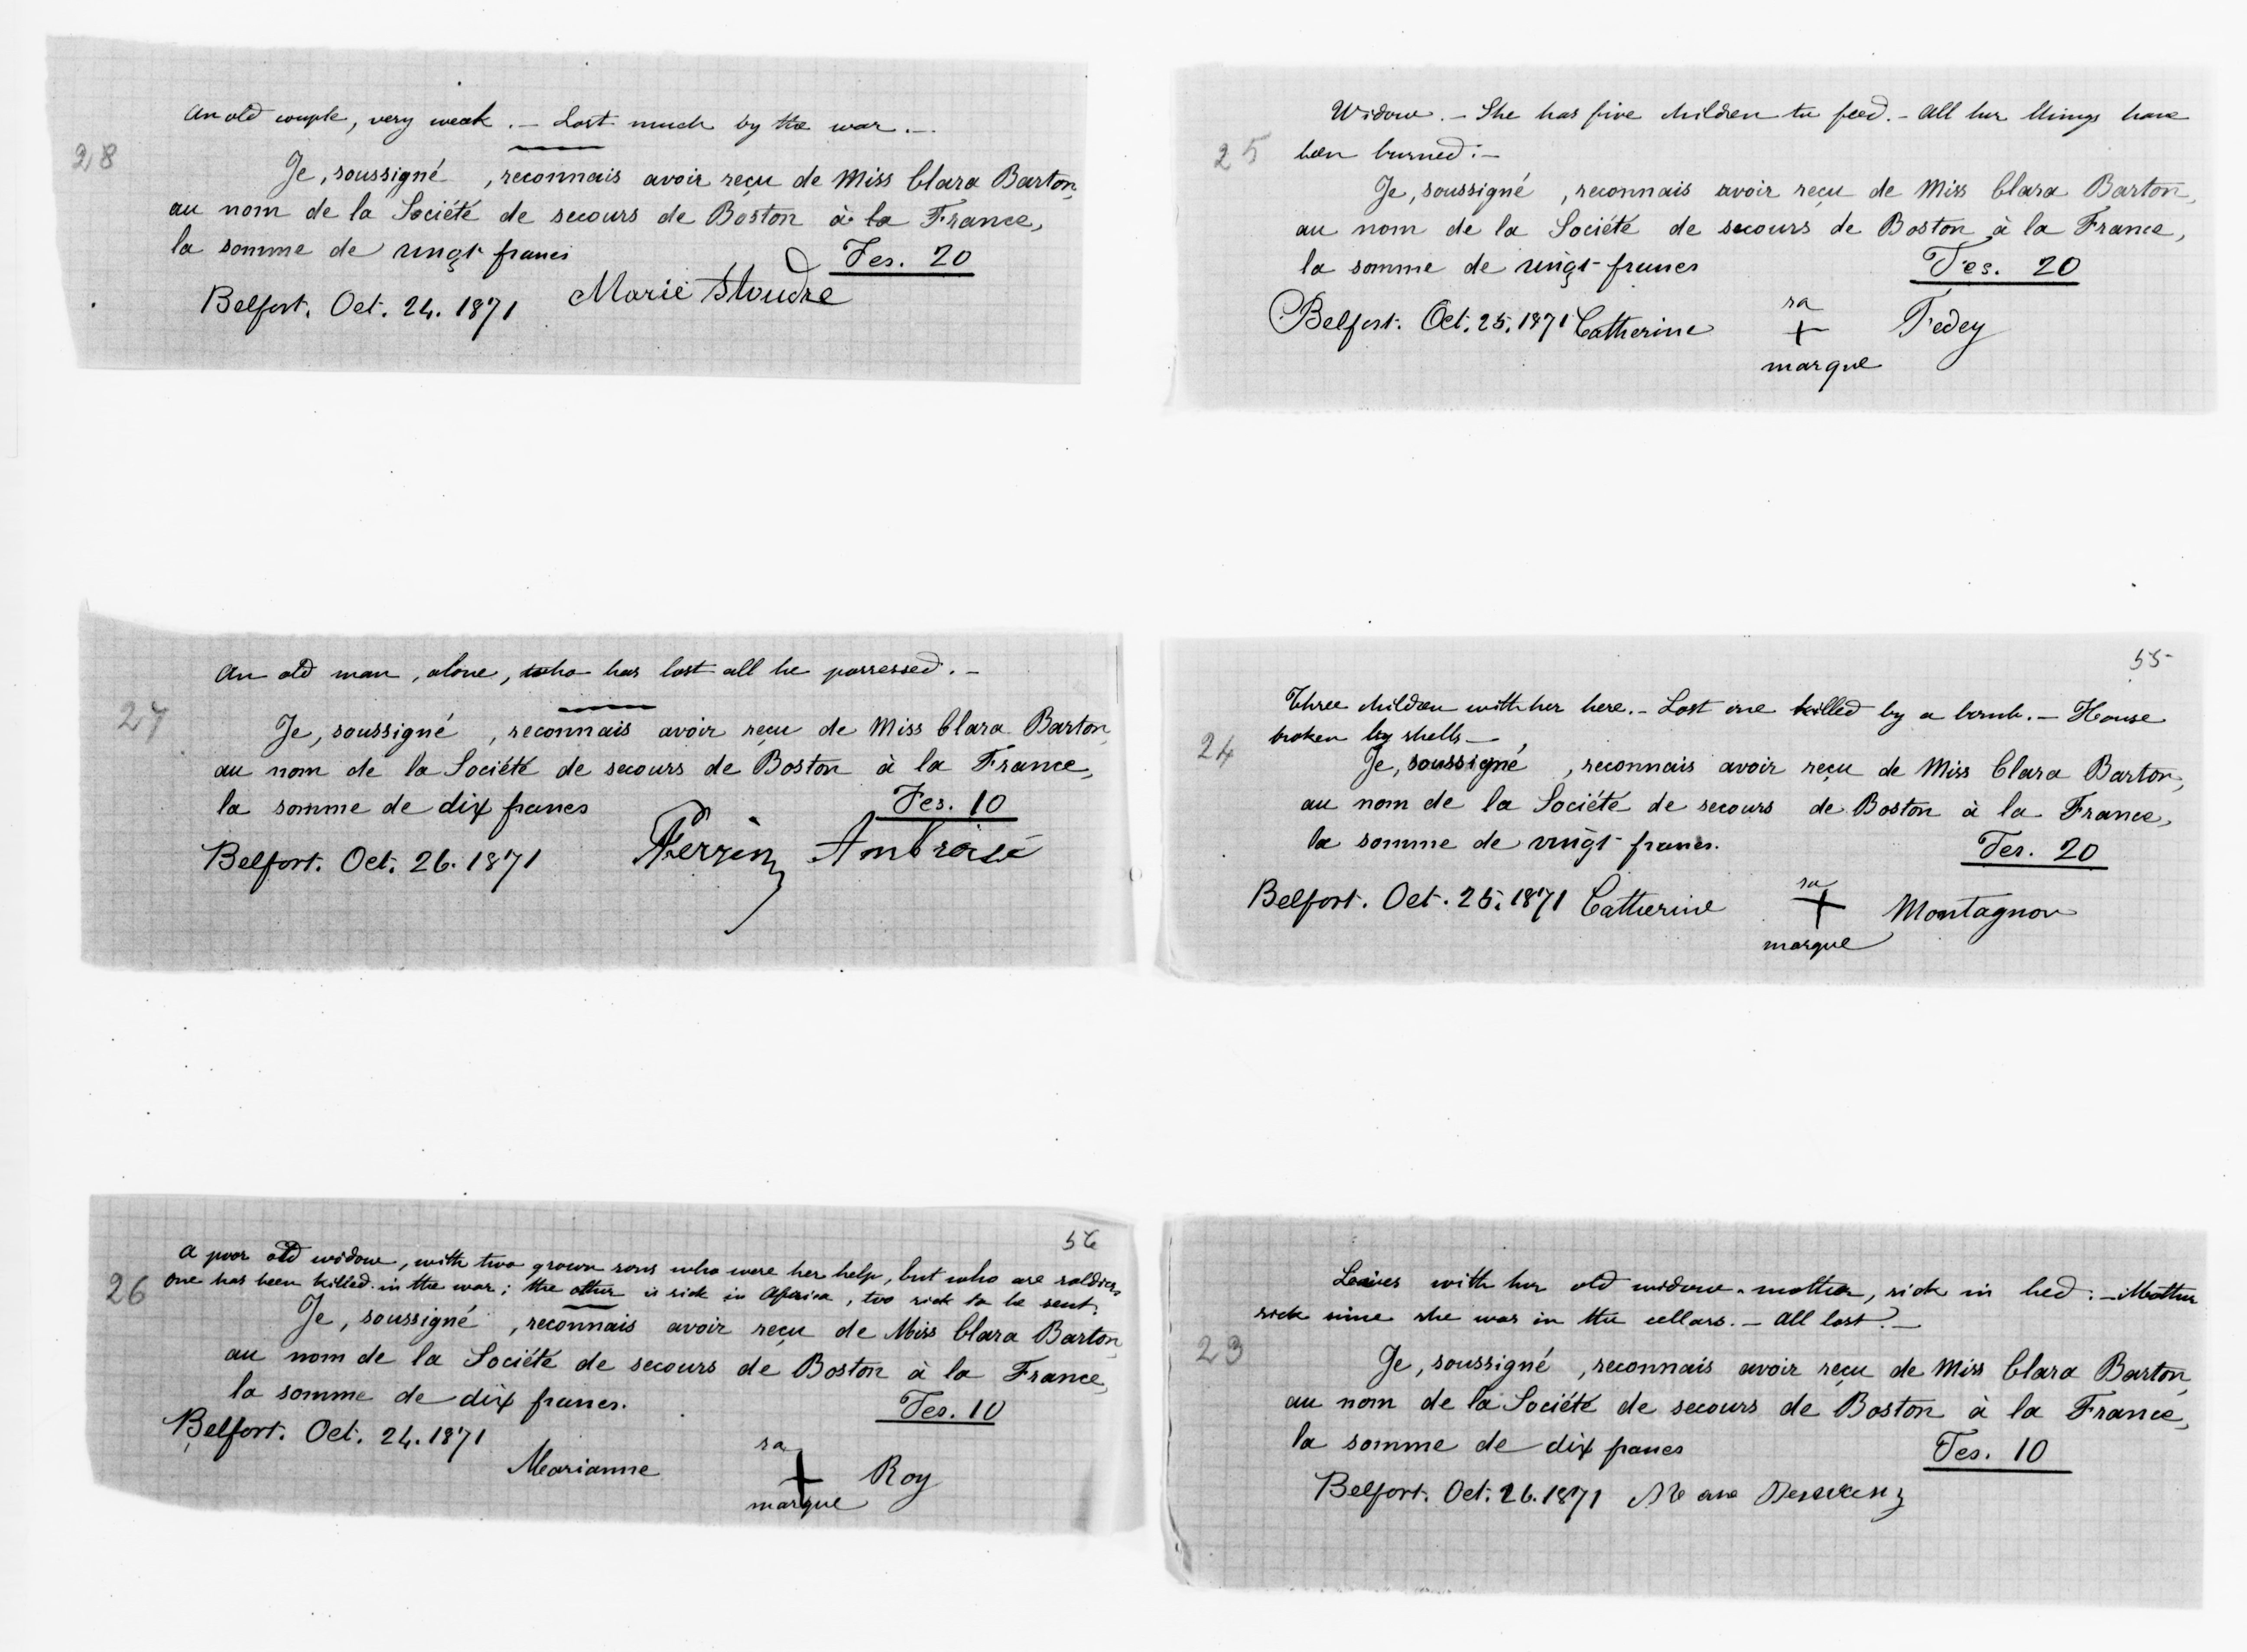 An old couple, very weak. – Lost much by the war. –
28
Je, soussigné , reconnais avoir reçu de Miss Clara Barton,
au nom de la Société de secours de Boston à la France,
la somme de vingt francs
Fcs. 20
Belfort. Oct. 24. 1871 Marie
An old man, alone, who has lost all he possessed. –
27
Je, soussigné , reconnais avoir reçu de Miss Clara Barton,
au nom de la Société de secours de Boston à la France,
la somme de dix francs
Fcs. 10
Belfort. Oct. 26. 1871 Perrin Ambroise
56
A poor old widow, with two grown sons who were her help, but who are soldiers
26 One has been killed in the war; the other is sick in Africa, too sick to be sent.
Je, soussigné , reconnais avoir reçu de Miss Clara Barton,
au nom de la Société de secours de Boston à la France,
la somme de dix francs.
Fcs. 10
Belfort. Oct. 24. 1871
Marianne sa + marque Roy
Widow. – She has five children to feed. – All her things have
25 been burned: –
Je, soussigné , reconnais avoir reçu de Miss Clara Barton,
au nom de la Société de secours de Boston à la France,
la somme de vingt francs
Fcs. 20
Belfort. Oct. 25. 1871 Catherine sa + marque Fedey
55
Three children with her here. – Lost one killed by a bomb. – House
broken by shells –
24
Je, soussigné , reconnais avoir reçu de Miss Clara Barton,
au nom de la Société de secours de Boston à la France,
la somme de vingt francs.
Fcs. 20
Belfort. Oct. 25. 1871 Catherine sa + marque Montagnon
with her old widow-mother, sick in bed: – Mother
sick since she was in the cellars. – All lost. –
23
Je, soussigné , reconnais avoir reçu de Miss Clara Barton,
au nom de la Société de secours de Boston à la France,
la somme de dix francs
Fcs. 10
Belfort. Oct. 26. 1871